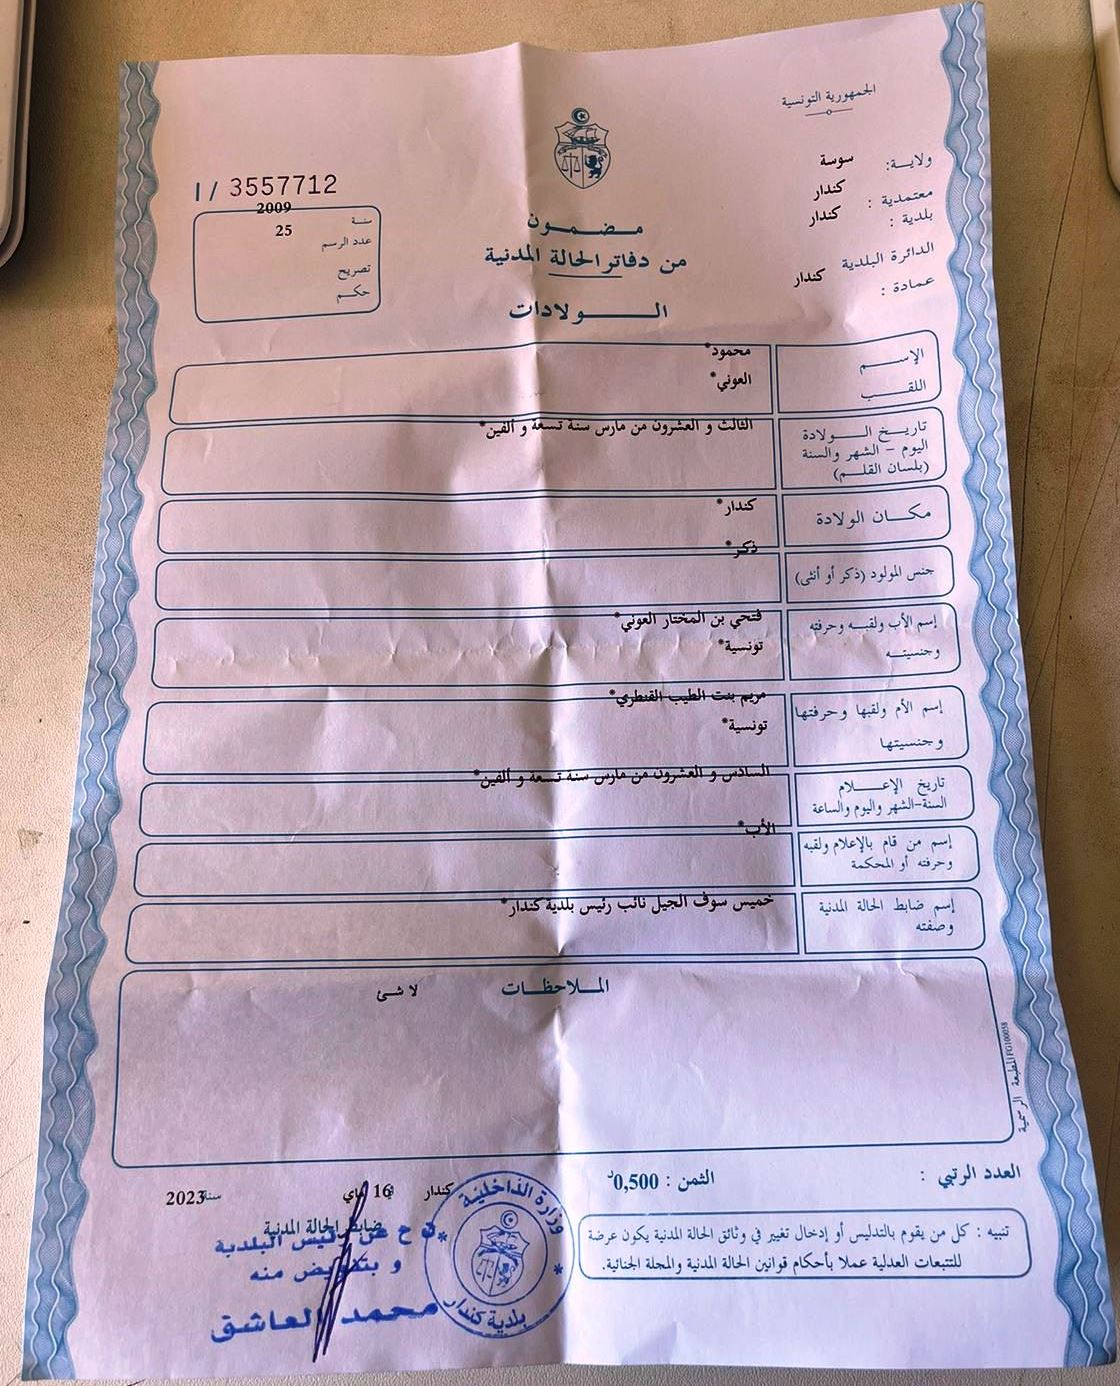 الجمهورية التونسية
ولاية: سوسة
معتمدية : كندار
بلدية : كندار
الدائرة البلدية كندار
عمادة :
I / 3557712
سنة 2009
عدد الرسم 25
تصريح
حكم
مضمون
من دفاتر الحالة المدنية
الولادات
الإسم محمود*
اللقب العوني*
تاريخ الولادة
اليوم - الشهر والسنة
(بلسان القلم)
الثالث و العشرون من مارس سنة تسعة و ألفين*
مكان الولادة كندار*
جنس المولود (ذكر أو أنثى) ذكر*
إسم الأب ولقبه وحرفته فتحي بن المختار العوني*
وجنسيته تونسية*
إسم الأم ولقبها وحرفتها مريم بنت الطيب القنطري*
وجنسيتها تونسية*
تاريخ الإعلام
السنة-الشهر واليوم والساعة
السادس و العشرون من مارس سنة تسعة و ألفين*
إسم من قام بالإعلام ولقبه
وحرفته أو المحكمة
الأب*
إسم ضابط الحالة المدنية
وصفته
خميس سوف الجيل نائب رئيس بلدية كندار*
الملاحظات
لا شئ
المطبعة الرسمية FG100038
العدد الرتبي :
الثمن : 0,500د
تنبيه : كل من يقوم بالتدليس أو إدخال تغيير في وثائق الحالة المدنية يكون عرضة
للتتبعات العدلية عملا بأحكام قوانين الحالة المدنية والمجلة الجنائية.
كندار 16 ماي سنة 2023
ضابط الحالة المدنية
عن رئيس البلدية
و بتفويض منه
محمد العاشق
وزارة الداخلية
بلدية كندار